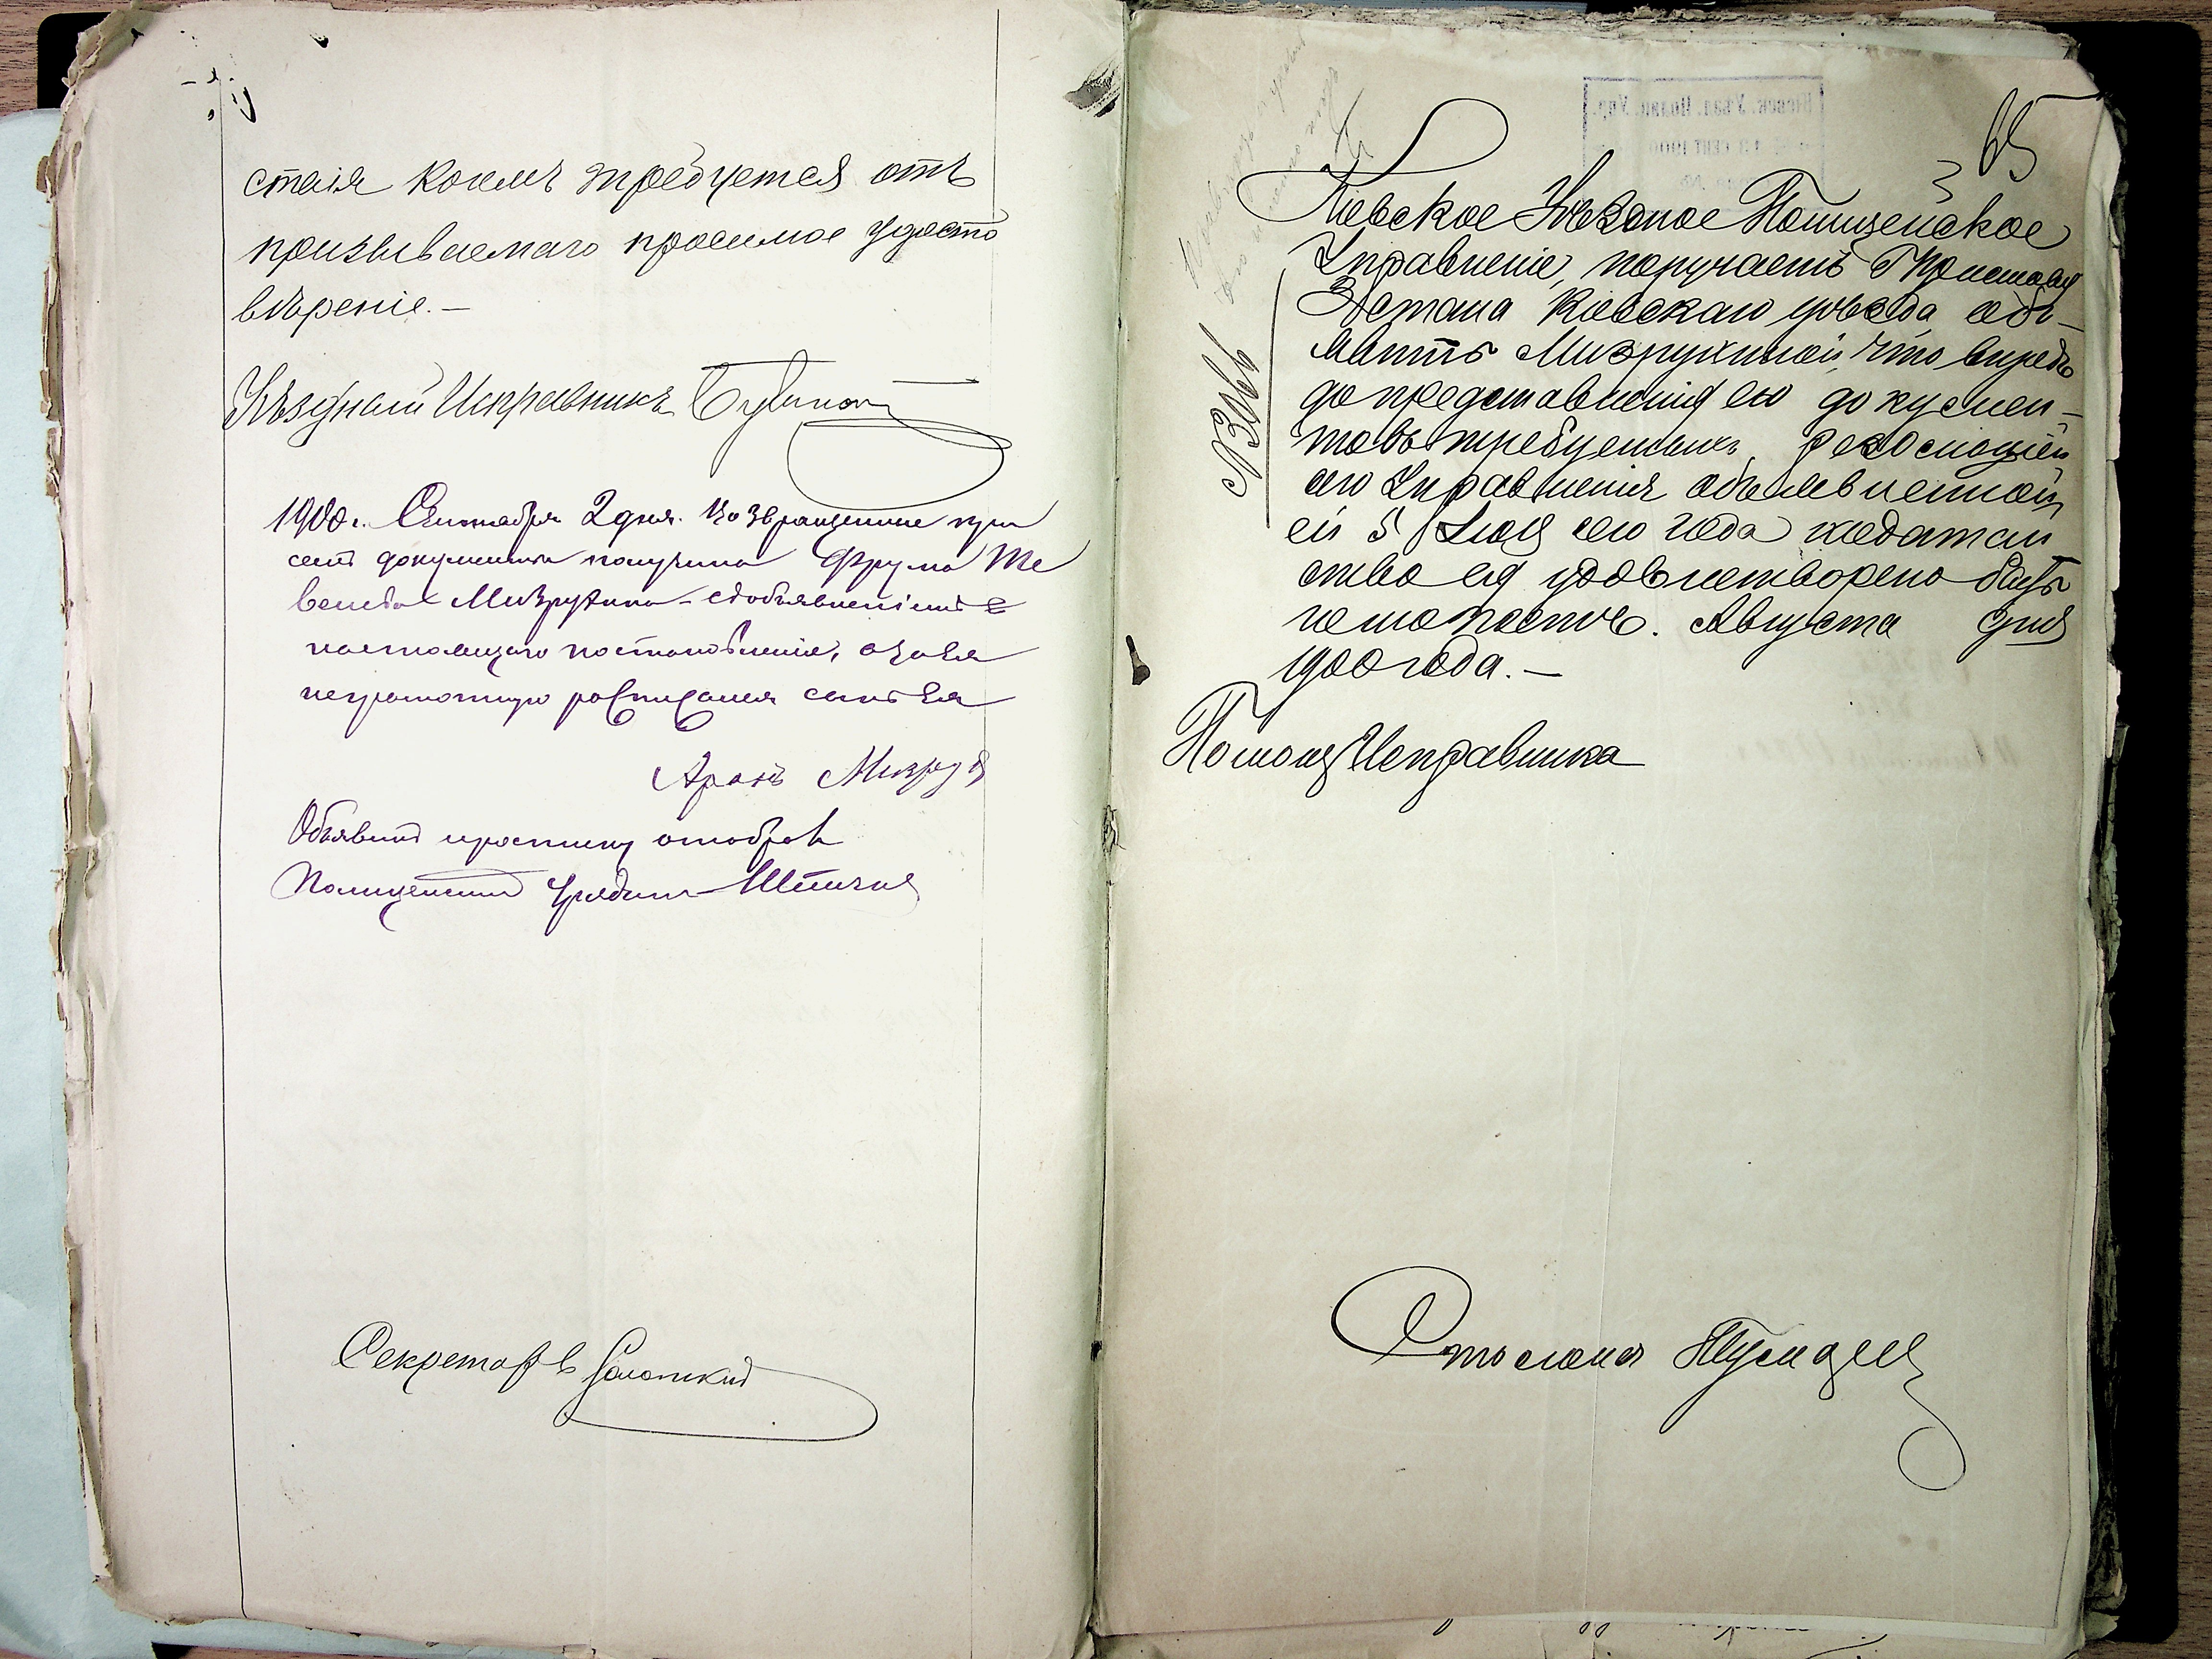 стоія коимъ требуется отъ
призываемаго просимое удосто
вѣреніе.—
Уѣздный Исправникъ
1900 г. Сентября 2 дня. Возвращенные при
семъ документы получила Фрума Те
Мизрухина с объявленіемъ
настоящаго постановленія, а за ея
неграмотную росписался сынъ ея
Аронъ Мизрух
Объявилъ и росписку отобралъ
Полицейский Урядник
Секретарь
65
Кіевск. Уѣзд. Полиц. Упр.
СЕНТ 1900
Кіевское Уѣздное Полицейское
Управленіе, поручаетъ Г. Приставу
3 стана Кіевскаго уѣзда объ-
явить Мизрухиной, что впредь
до представленія ею докумен-
товъ требуемыхъ резолюціей
сего Управленія объявленной
ей 5 Іюля сего года ходатай
ство ея удовлетворено быть
не можетъ. Августа дня
1900 года.—
Помощ. Исправника
Столонач.